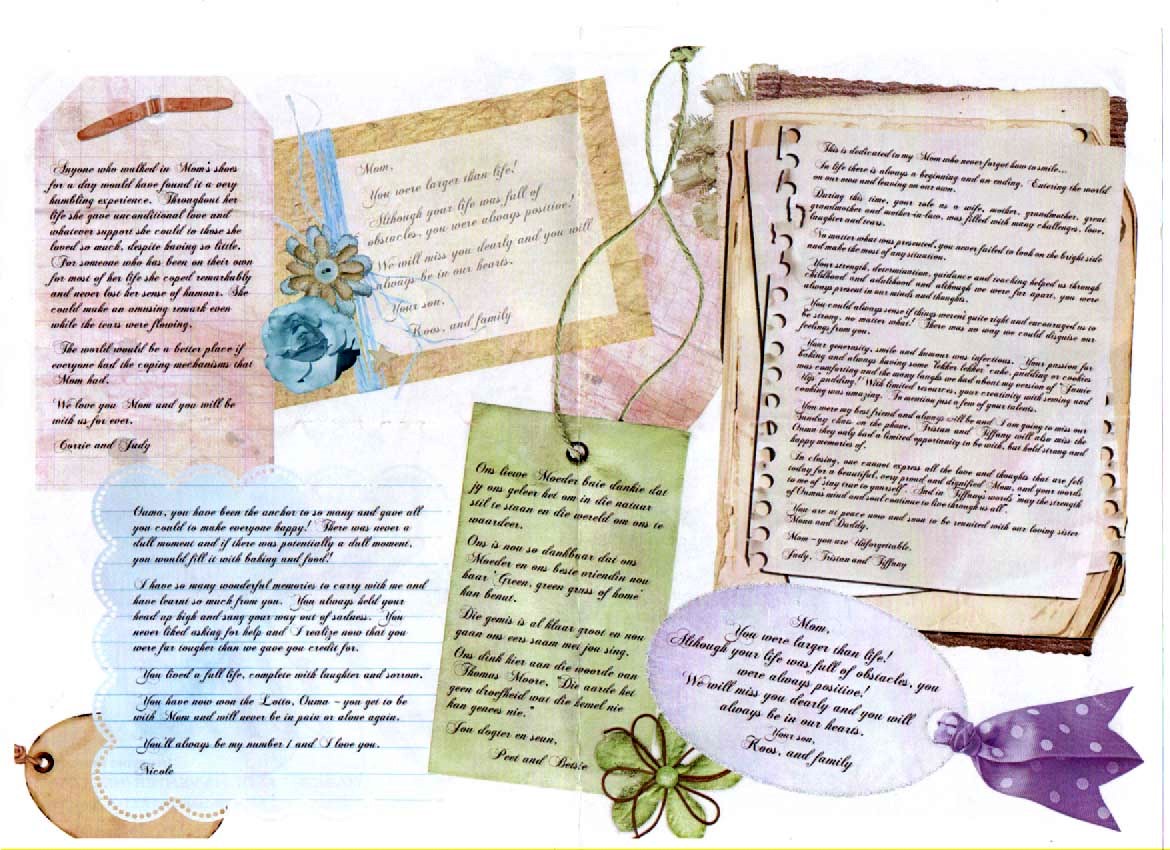 Anyone who walked in Mom's shoes
for a day would have found it a very
humbling experience. Throughout her
life she gave unconditional love and
whatever support she could to those she
loved so much, despite having so little.
For someone who has been on their own
for most of her life she coped remarkably
and never lost her sense of humour. She
could make an amusing remark even
while the tears were flowing.
The world would be a better place if
everyone had the coping mechanisms that
Mom had.
We love you Mom and you will be
with us for ever.
Corrie and Judy
Mom,
You were larger than life!
Although your life was full of
obstacles, you were always positive!
We will miss you dearly and you will
always be in our hearts.
Your son,
Koos, and family
This is dedicated to my Mom who never forgot how to smile...
In life there is always a beginning and an ending. Entering the world
on our own and leaving on our own.
During this time, your role as a wife, mother, grandmother, great
grandmother and mother-in-law, was filled with many challenges, love,
laughter and tears.
No matter what was presented, you never failed to look on the bright side
and make the most of any situation.
Your strength, determination, guidance and teaching helped us through
childhood and adulthood and although we were far apart, you were
always present in our minds and thoughts.
You could always sense if things weren't quite right and encouraged us to
be strong, no matter what! There was no way we could disguise our
feelings from you.
Your generosity, smile and humour was infectious. Your passion for
baking and always having some "lekker lekker" cake, pudding or cookies
was comforting and the many laughs we had about my version of
pudding." With limited resources, your creativity with sewing and
cooking was amazing. To mention just a few of your talents.
You were my best friend and always will be and I am going to miss our
Sunday chats on the phone. Tristan and Tiffany will also miss the
Ouma they only had a limited opportunity to be with, but hold strong and
happy memories of.
In closing, one cannot express all the love and thoughts that are felt
today for a beautiful, very proud and dignified Mom, and your words
to me of "stay true to yourself". And in Tiffany's words "may the strength
of Oumas mind and soul continue to live through us all".
You are at peace now and soon to be reunited with our loving sister
Mona and Daddy.
Mom - you are Unforgettable.
Judy, Tristan and Tiffany
Ouma, you have been the anchor to so many and gave all
you could to make everyone happy! There was never a
dull moment and if there was potentially a dull moment,
you would fill it with baking and food!
I have so many wonderful memories to carry with me and
have learnt so much from you. You always held your
head up high and sang your way out of sadness. You
never liked asking for help and I realize now that you
were far tougher than we gave you credit for.
You lived a full life, complete with laughter and sorrow.
You have now won the Lotto, Ouma - you get to be
with Mom and will never be in pain or alone again.
You'll always be my number 1 and I love you.
Nicole
Ons liewe Moeder baie dankie dat
jy ons geleer het om in die natuur
stil te staan en die wereld om ons te
waardeer.
Ons is nou so dankbaar dat ons
Moeder en ons beste vriendin nou
haar 'Green, green grass of home'
kan benut.
Die gemis is al klaar groot en nou
gaan ons eers saam met jou sing.
Ons dink hier aan die woorde van
Thomas Moore, "Die aarde het
geen droefheid wat die hemel nie
kan genees nie."
Jou dogter en seun,
Peet and Betsie
Mom,
You were larger than life!
Although your life was full of obstacles, you
were always positive!
We will miss you dearly and you will
always be in our hearts.
Your son,
Koos, and family